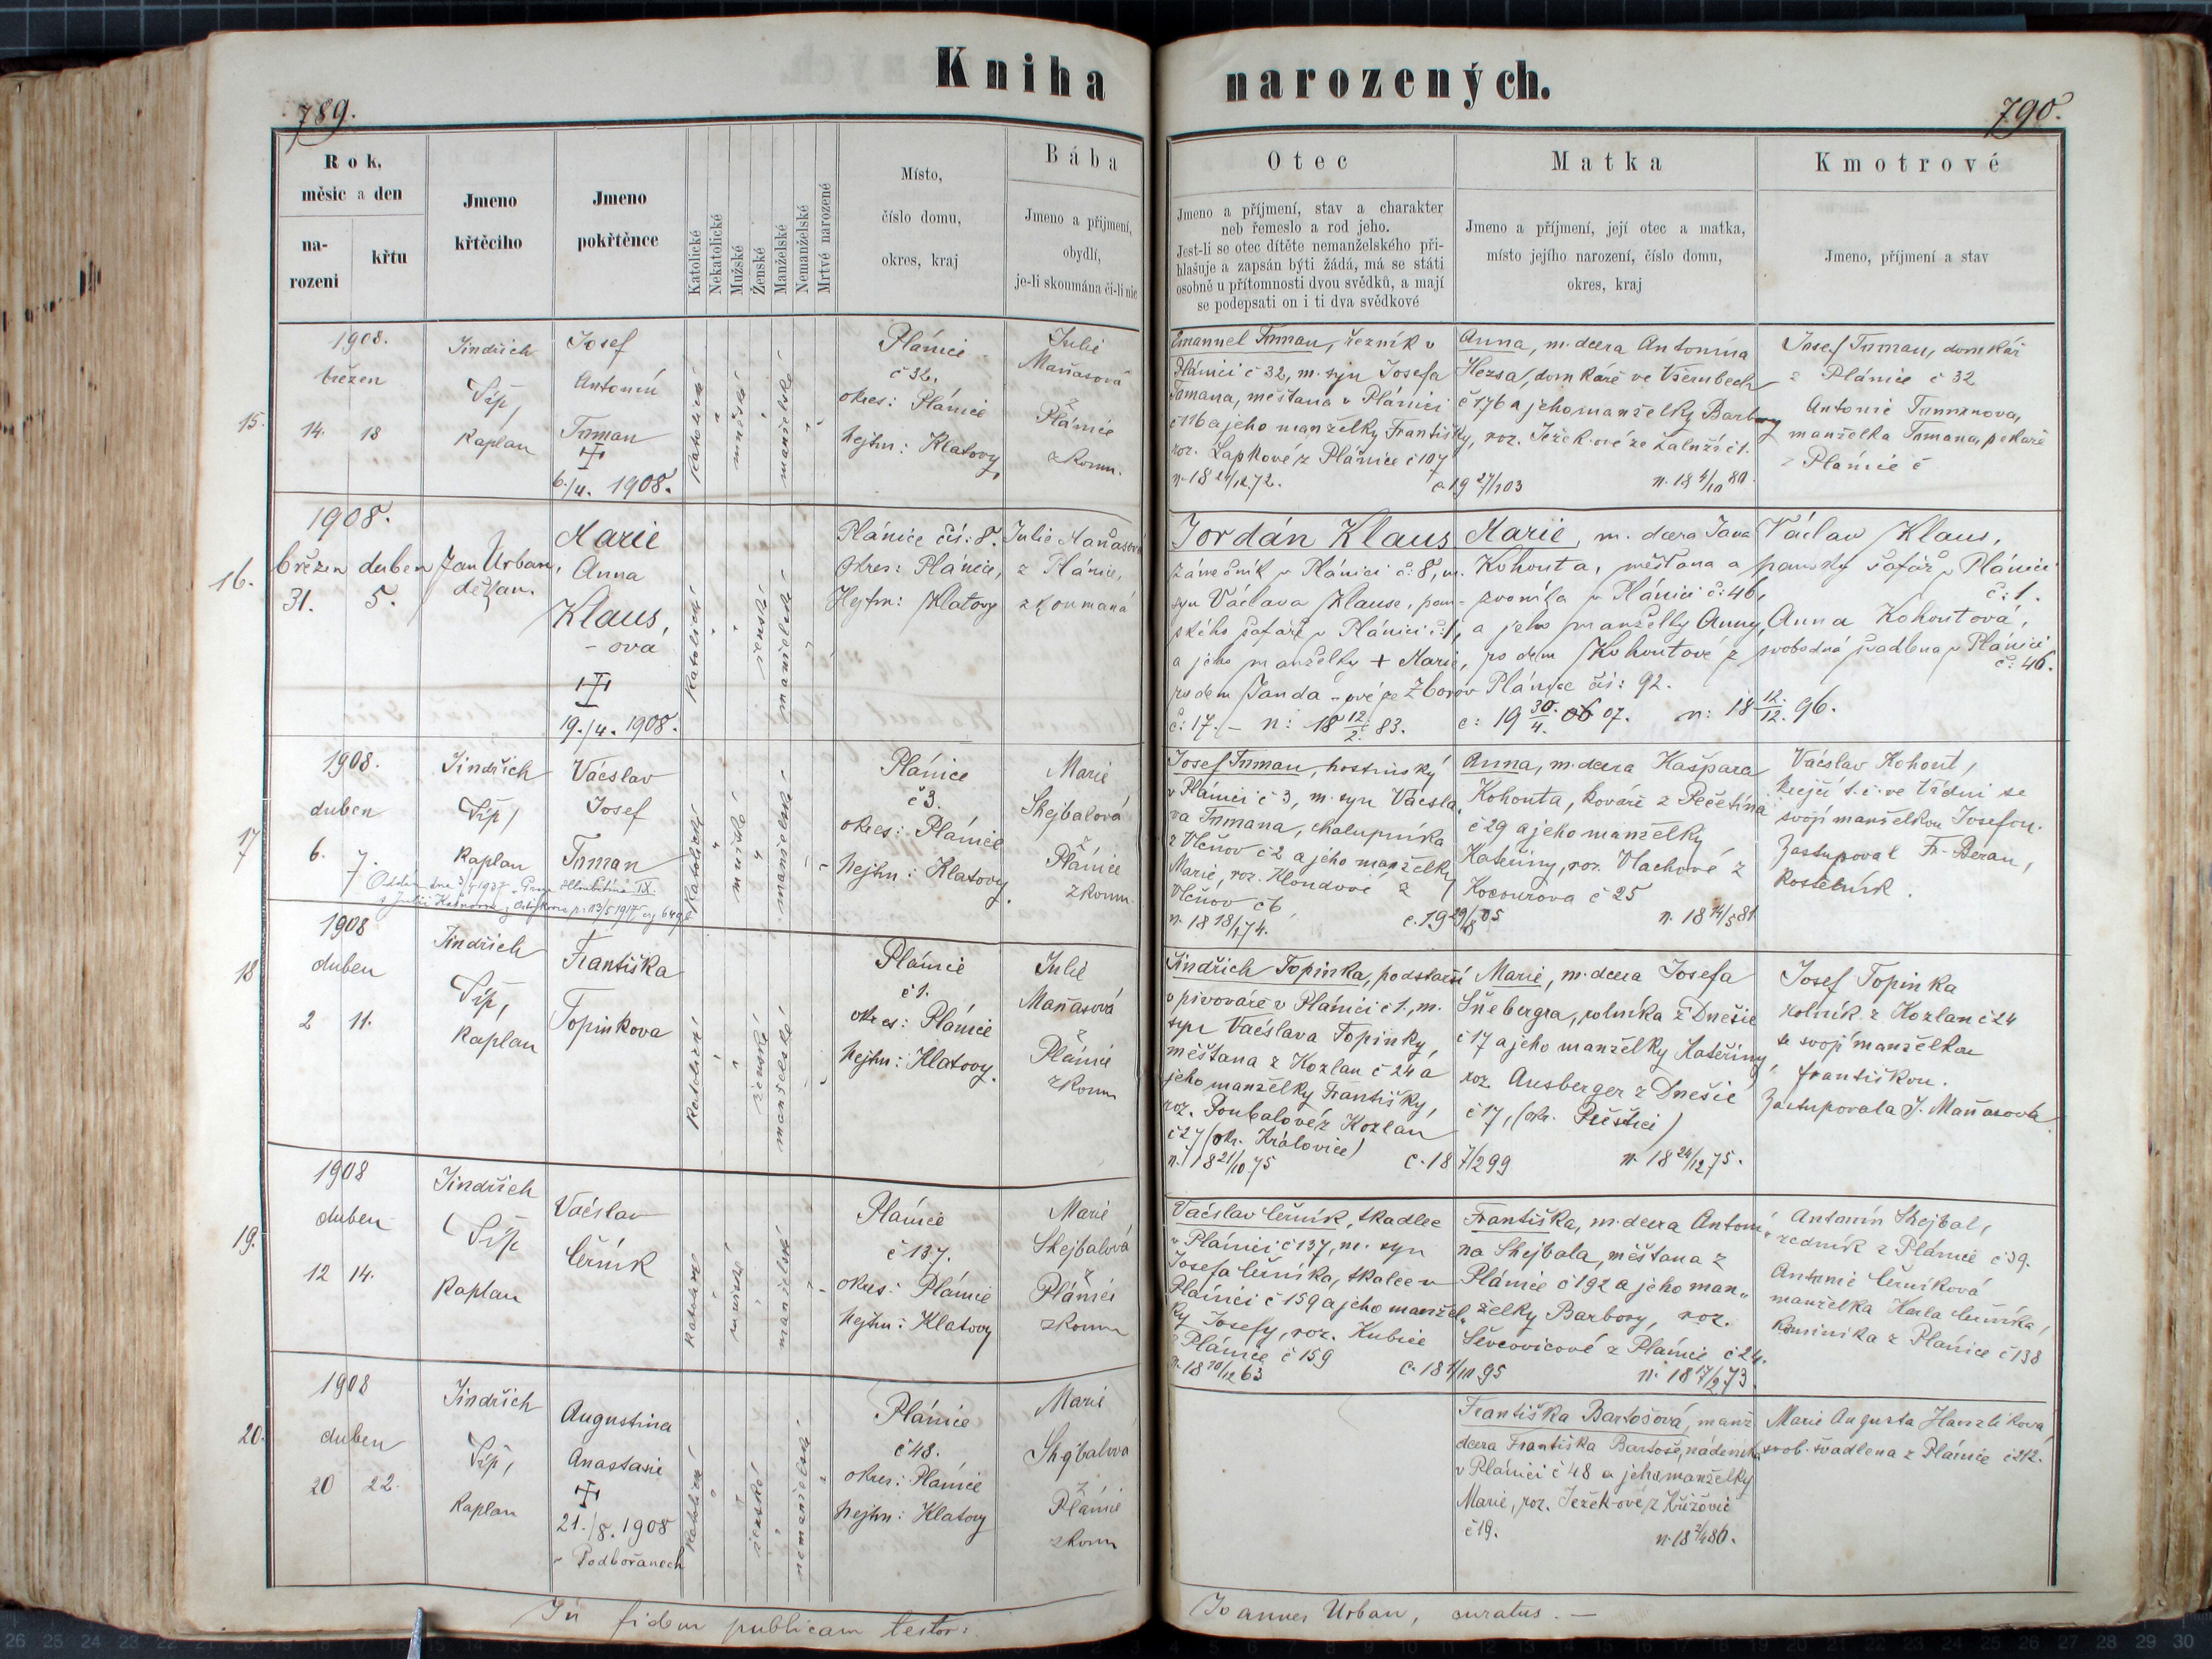 Kniha narozených.
789.
790.
Rok,
měsíc a den
na-
rození
křtu
Jmeno
křtěcího
Jmeno
pokřtěnce
Katolické
Nekatolické
Mužské
Ženské
Manželské
Nemanželské
Mrtvé narozené
Místo,
číslo domu,
okres, kraj
Bába
Jmeno a přijmení,
obydlí,
je-li skoumána či-li nic
Otec
Jmeno a příjmení, stav a charakter
neb řemeslo a rod jeho.
Jest-li se otec dítěte nemanželského při-
hlašuje a zapsán býti žádá, má se státi
osobně u přítomnosti dvou svědků, a mají
se podepsati on i ti dva svědkové
Matka
Jmeno a příjmení, její otec a matka,
místo jejího narození, číslo domu,
okres, kraj
Kmotrové
Jmeno, příjmení a stav
15.
1908.
březen
14. 18
Jindřich
Šíp,
kaplan
Josef
Antonín
Tuman
6./4. 1908.
katolické
mužské
manželské
Plánice
č 32.
okres: Plánice
hejtm: Klatovy
Julie
Maňasová
z
Plánice
zkoum.
Emanuel Tuman, řezník v
Plánici č 32, m. syn Josefa
Tumana, měšťana v Plánici
č 116 a jeho manželky Františky,
roz. Lapkové z Plánice č 107
n. 18 24/12 72.
c. 19 27/1 03
Anna, m. dcera Antonína
domkáře ve Všerubech
č 176 a jeho manželky Barbory
roz. Ježek-ové ze Žaluží č 1.
n. 18 4/10 80.
Josef Tuman, domkář
z Plánice č 32
Antonie Tumanova,
manželka Tumana, pekaře
z Plánice č
16.
1908.
březen duben
31. 5.
Jan Urban,
děkan.
Marie
Anna
Klaus,
- ová
19./4. 1908.
katolické
ženské
manželské
Plánice čís: 8.
Okres: Plánice,
Hejtm: Klatovy
Julie Maňasová
z Plánice,
zkoumaná
Jordán Klaus
zámečník v Plánici č: 8, m.
syn Václava Klause, pan-
ského šafáře v Plánici č: 1,
a jeho manželky + Marie,
rodem Janda-ové ze Zborov
č: 17. - n: 18 12/2. 83.
Marie, m. dcera Jana
Kohouta, měšťana a
zvoníka v Plánici č: 46,
a jeho manželky Anny,
rodem Kohoutové z
Plánice čís: 92.
c: 19 30./4. 07. n: 18 12./12. 96.
Václav Klaus,
panský šafář v Plánici
č: 1.
Anna Kohoutová,
svobodná švadlena v Plánici
č: 46.
17
1908.
duben
6. 7.
Jindřich
Šíp,
kaplan
Václav
Josef
Tuman
katolické
mužské
manželské
Plánice
č 3.
okres: Plánice
hejtm: Klatovy.
Marie
Skejbalová
z
Plánice
zkoum.
Josef Tuman, hostinský
v Plánici č 3, m. syn Václa-
va Tumana, chalupníka
z Vlčňov č 2 a jeho manželky
Marie, roz. Hloudové z
Vlčňov č 6,
n. 18 18/1 74.
c. 19 29/8 05
Anna, m. dcera Kašpara
Kohouta, kováře z Pečetína
č 29 a jeho manželky
Kateřiny, roz. Vlachové z
Kocourova č 25
n. 18 14/5 81
Václav Kohout,
krejčí t. č. ve Vídni se
svojí manželkou Josefou.
Zastupoval Fr. Beran,
kostelník.
18
1908
duben
2 11.
Jindřich
Šíp,
kaplan
Františka
Topinkova
katolické
ženské
manželské
Plánice
č 1.
okres: Plánice
hejtm: Klatovy.
Julie
Maňasová
z
Plánice
zkoum
Jindřich Topinka, podstarší
v pivováře v Plánici č 1., m.
syn Václava Topinky,
měšťana z Kozlan č 24 a
jeho manželky Františky,
roz. Poubalové z Kozlan
č 27 (okr. Královice)
n. 18 21/10 75
c. 18 7/2 99
Marie, m. dcera Josefa
Šnebergra, rolníka z Dnešic
č 17 a jeho manželky Kateřiny,
roz. Ausberger z Dnešic
č 17, (okr. Přeštici)
n. 18 24/12 75.
Josef Topinka
rolník z Kozlan č 24
se svojí manželkou
Františkou.
Zastupovala J. Maňasová
19.
1908
duben
12 14.
Jindřich
Šíp
kaplan
Václav
Černík
katolické
mužské
manželské
Plánice
č 137.
okres: Plánice
hejtm: Klatovy
Marie
Skejbalová
z
Plánici
zkoum
Václav Černík, tkadlec
v Plánici č 137, m. syn
Josefa Černíka, tkalce v
Plánici č 159 a jeho manžel-
ky Josefy, roz. Kubice
z Plánice č 159
n. 18 20/12 63
c. 18 4/11 95
Františka, m. dcera Antoní-
na Skejbala, měšťana z
Plánice č 192 a jeho man-
želky Barbory, roz.
Ševcovicové z Plánice č 24.
n. 18 17/2 73.
Antonín Skejbal,
zedník z Plánice č 39.
Antonie Černíková
manželka Karla Černíka,
kominíka z Plánice č 138
20.
1908
duben
20 22.
Jindřich
Šíp,
kaplan
Augustina
Anastasie
21./8. 1908
v Podbořanech
katolické
ženské
nemanželské
Plánice
č 48.
okres: Plánice
hejtm: Klatovy
Marie
Skejbalová
z
Plánice
zkoum
Františka Bartošová, manž
dcera Františka Bartoše, nádeníka
v Plánici č 48 a jeho manželky
Marie, roz. Ježek-ové z Křížovic
č 19.
n. 18 2/4 86.
Marie Augusta Hanzlíkova,
svob. švadlena z Plánice č 212.
In fidem publicam testor:
Joannes Urban, curatus. —